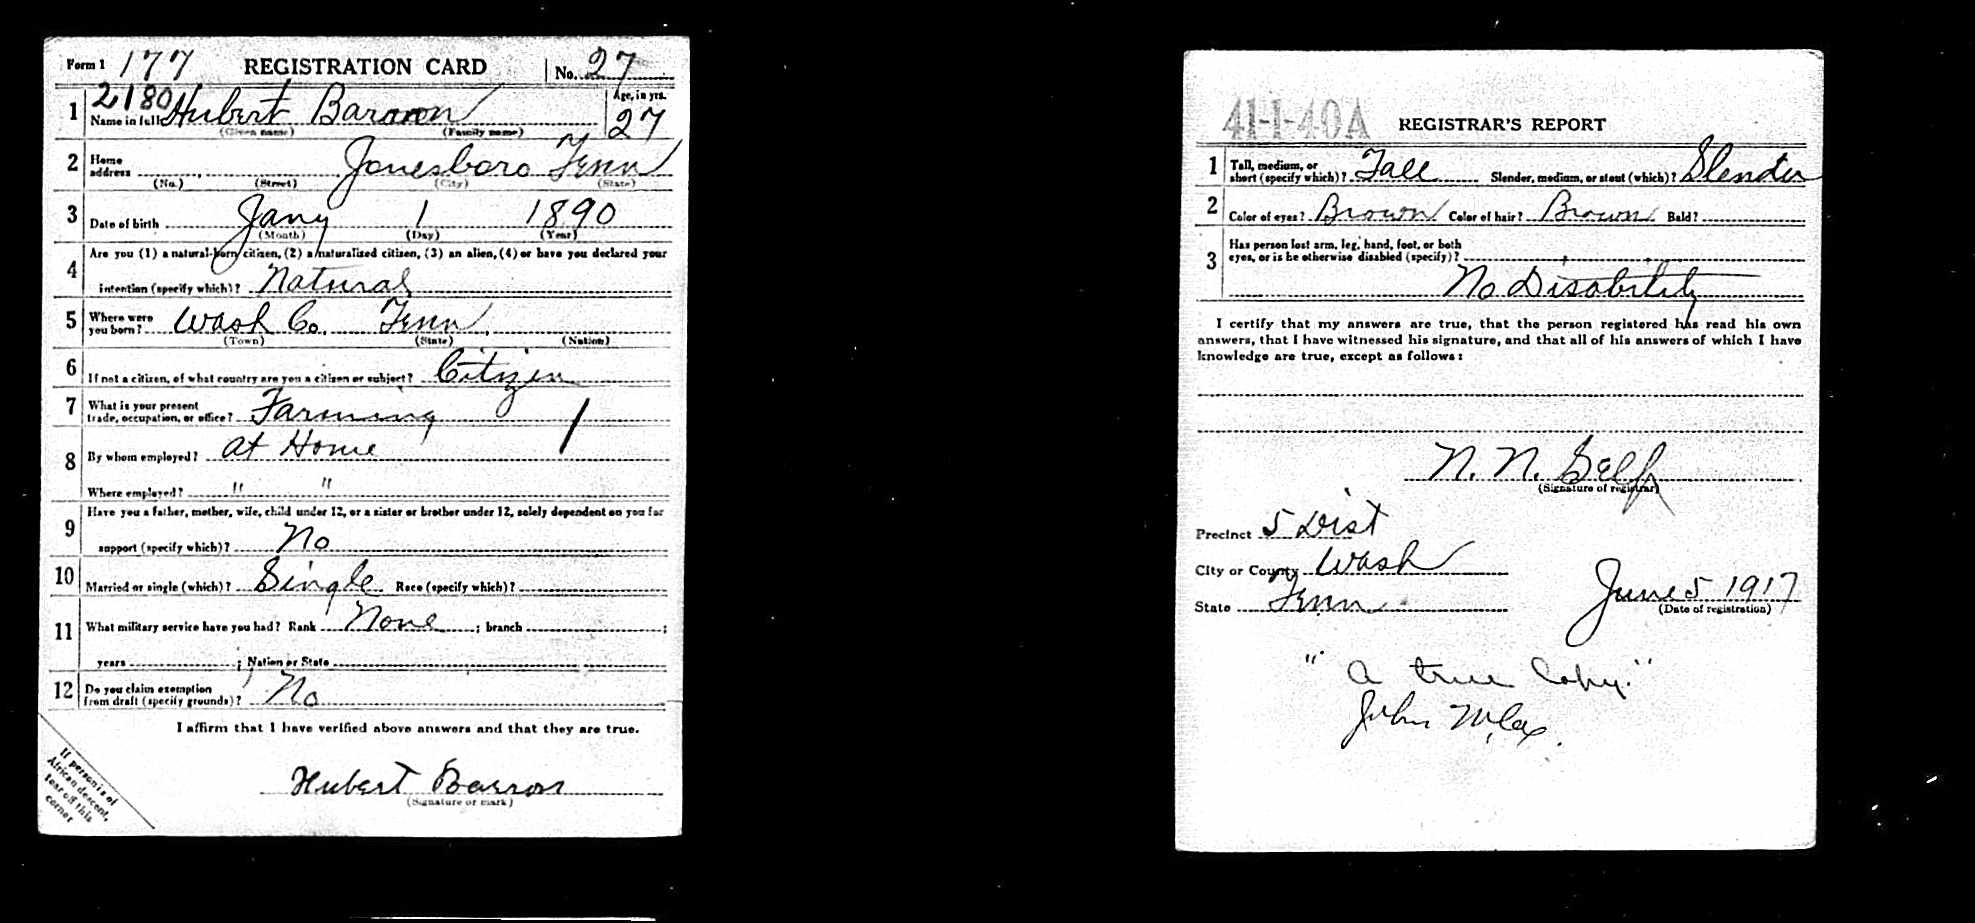 Form 1 177 REGISTRATION CARD No. 27
2180
1 Name in full Hubert Barron Age, in yrs. 27
(Given name) (Family name)
2 Home address Jonesboro Tenn
(No.) (Street) (City) (State)
3 Date of birth Jany 1 1890
(Month) (Day) (Year)
4 Are you (1) a natural-born citizen, (2) a naturalized citizen, (3) an alien, (4) or have you declared your
intention (specify which)? Natural
5 Where were you born? Wash Co. Tenn.
(Town) (State) (Nation)
6 If not a citizen, of what country are you a citizen or subject? Citizen
7 What is your present trade, occupation, or office? Farming
8 By whom employed? at Home
Where employed? " "
9 Have you a father, mother, wife, child under 12, or a sister or brother under 12, solely dependent on you for
support (specify which)? No
10 Married or single (which)? Single Race (specify which)?
11 What military service have you had? Rank None ; branch ;
years ; Nation or State
12 Do you claim exemption from draft (specify grounds)? No
I affirm that I have verified above answers and that they are true.
Hubert Barron
(Signature or mark)
If person is of
African descent,
tear off this
corner
41-1-40A REGISTRAR'S REPORT
1 Tall, medium, or short (specify which)? Tall Slender, medium, or stout (which)? Slender
2 Color of eyes? Brown Color of hair? Brown Bald?
3 Has person lost arm, leg, hand, foot, or both
eyes, or is he otherwise disabled (specify)?
No Disability
I certify that my answers are true, that the person registered has read his own
answers, that I have witnessed his signature, and that all of his answers of which I have
knowledge are true, except as follows:
N. N. Self
(Signature of registrar)
Precinct 5 Dist
City or County Wash
State Tenn June 5 1917
(Date of registration)
"a true Copy."
John